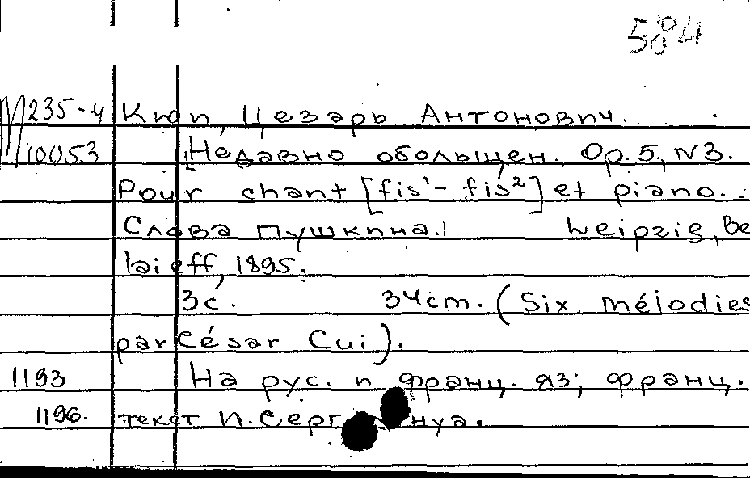 584
235-4 Кюи, Цезарь Антонович.
10053 [Недавно обольщен. Op.5, N3.
Pour chant [fis¹-fis²] et piano.
Слова Пушкина.] Leipzig, Be
laieff, 1895.
3с. 34cm. (Six mélodies
par César Cui).
1193 На рус. и франц. яз; франц.
1196. текст